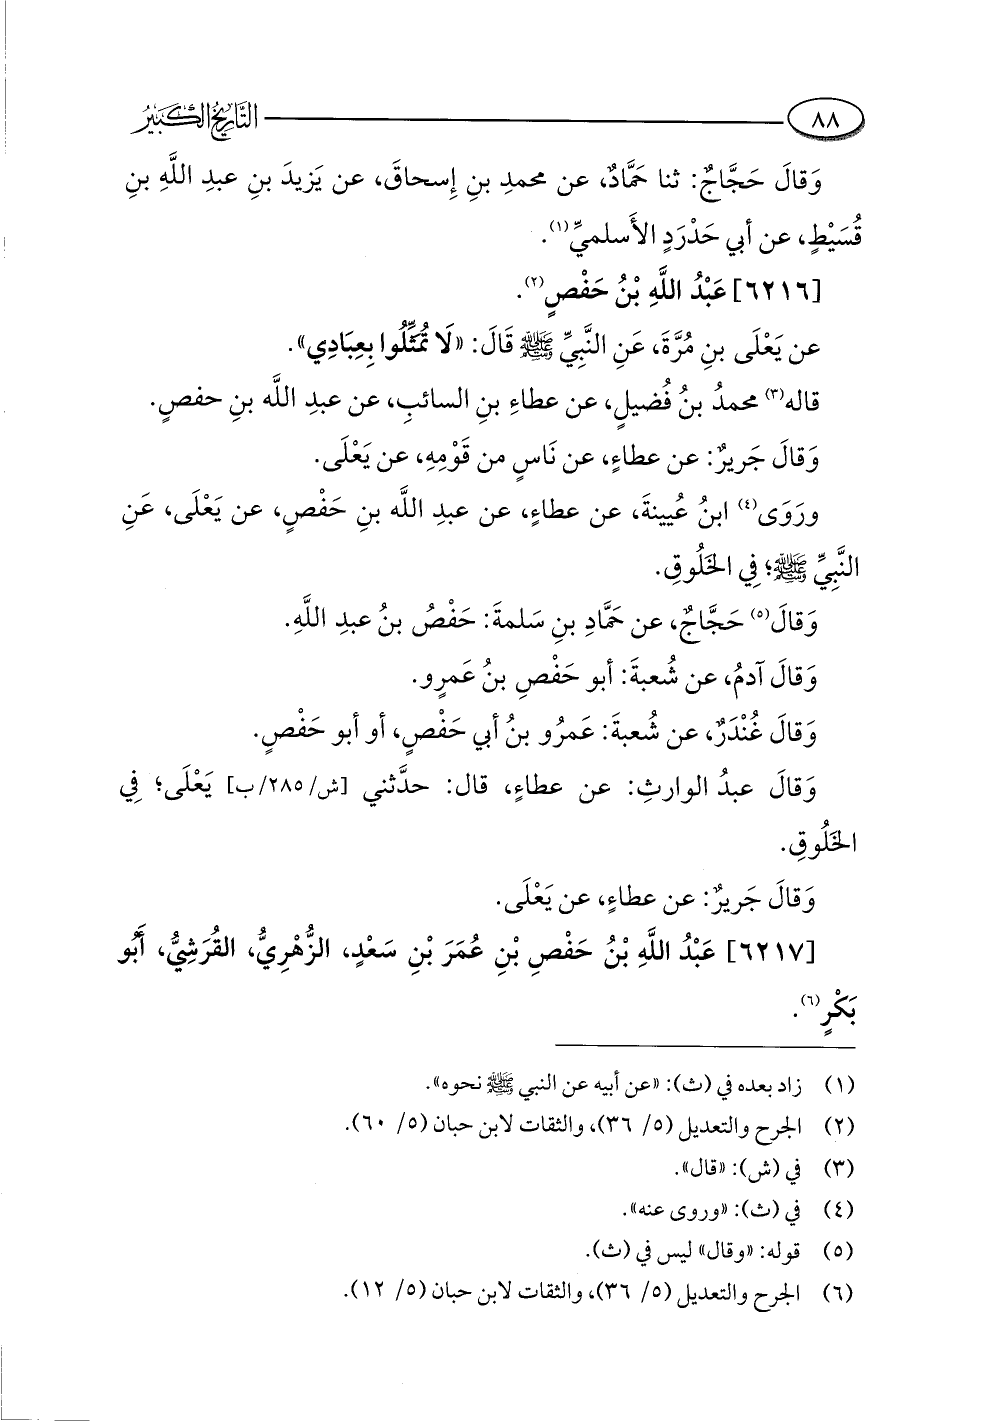 ٨٨ التَّارِيخُ الكَبِيرُ
وَقالَ حَجَّاجٌ: ثنا حَمَّادٌ، عن محمدِ بنِ إسحاقَ، عن يَزِيدَ بنِ عبدِ اللَّهِ بنِ
قُسَيْطٍ، عن أبي حَدْرَدٍ الأَسلميِّ(١).
[٦٢١٦] عَبْدُ اللَّهِ بْنُ حَفْصٍ(٢).
عن يَعْلَى بنِ مُرَّةَ، عَنِ النَّبِيِّ ﷺ قَالَ: «لَا تُمَثِّلُوا بِعِبَادِي».
قاله(٣) محمدُ بنُ فُضيلٍ، عن عطاءِ بنِ السائبِ، عن عبدِ اللَّه بنِ حفصٍ.
وَقالَ جَريرٌ: عن عطاءٍ، عن نَاسٍ من قَوْمِهِ، عن يَعْلَى.
ورَوَى(٤) ابنُ عُيينةَ، عن عطاءٍ، عن عبدِ اللَّه بنِ حَفْصٍ، عن يَعْلَى، عَنِ
النَّبِيِّ ﷺ؛ فِي الخَلُوقِ.
وَقالَ(٥) حَجَّاجٌ، عن حَمَّادِ بنِ سَلمةَ: حَفْصُ بنُ عبدِ اللَّهِ.
وَقالَ آدمُ، عن شُعبةَ: أبو حَفْصِ بنُ عَمرٍو.
وَقالَ غُنْدَرٌ، عن شُعبةَ: عَمرُو بنُ أبي حَفْصٍ، أو أبو حَفْصٍ.
وَقالَ عبدُ الوارثِ: عن عطاءٍ، قال: حدَّثني [ش/٢٨٥/ب] يَعْلَى؛ فِي
الخَلُوقِ.
وَقالَ جَريرٌ: عن عطاءٍ، عن يَعْلَى.
[٦٢١٧] عَبْدُ اللَّهِ بْنُ حَفْصِ بْنِ عُمَرَ بْنِ سَعْدٍ، الزُّهْرِيُّ، القُرَشِيُّ، أَبُو
بَكْرٍ(٦).
(١) زاد بعده في (ث): «عن أبيه عن النبي ﷺ نحوه».
(٢) الجرح والتعديل (٥/ ٣٦)، والثقات لابن حبان (٥/ ٦٠).
(٣) في (ش): «قال».
(٤) في (ث): «وروى عنه».
(٥) قوله: «وقال» ليس في (ث).
(٦) الجرح والتعديل (٥/ ٣٦)، والثقات لابن حبان (٥/ ١٢).